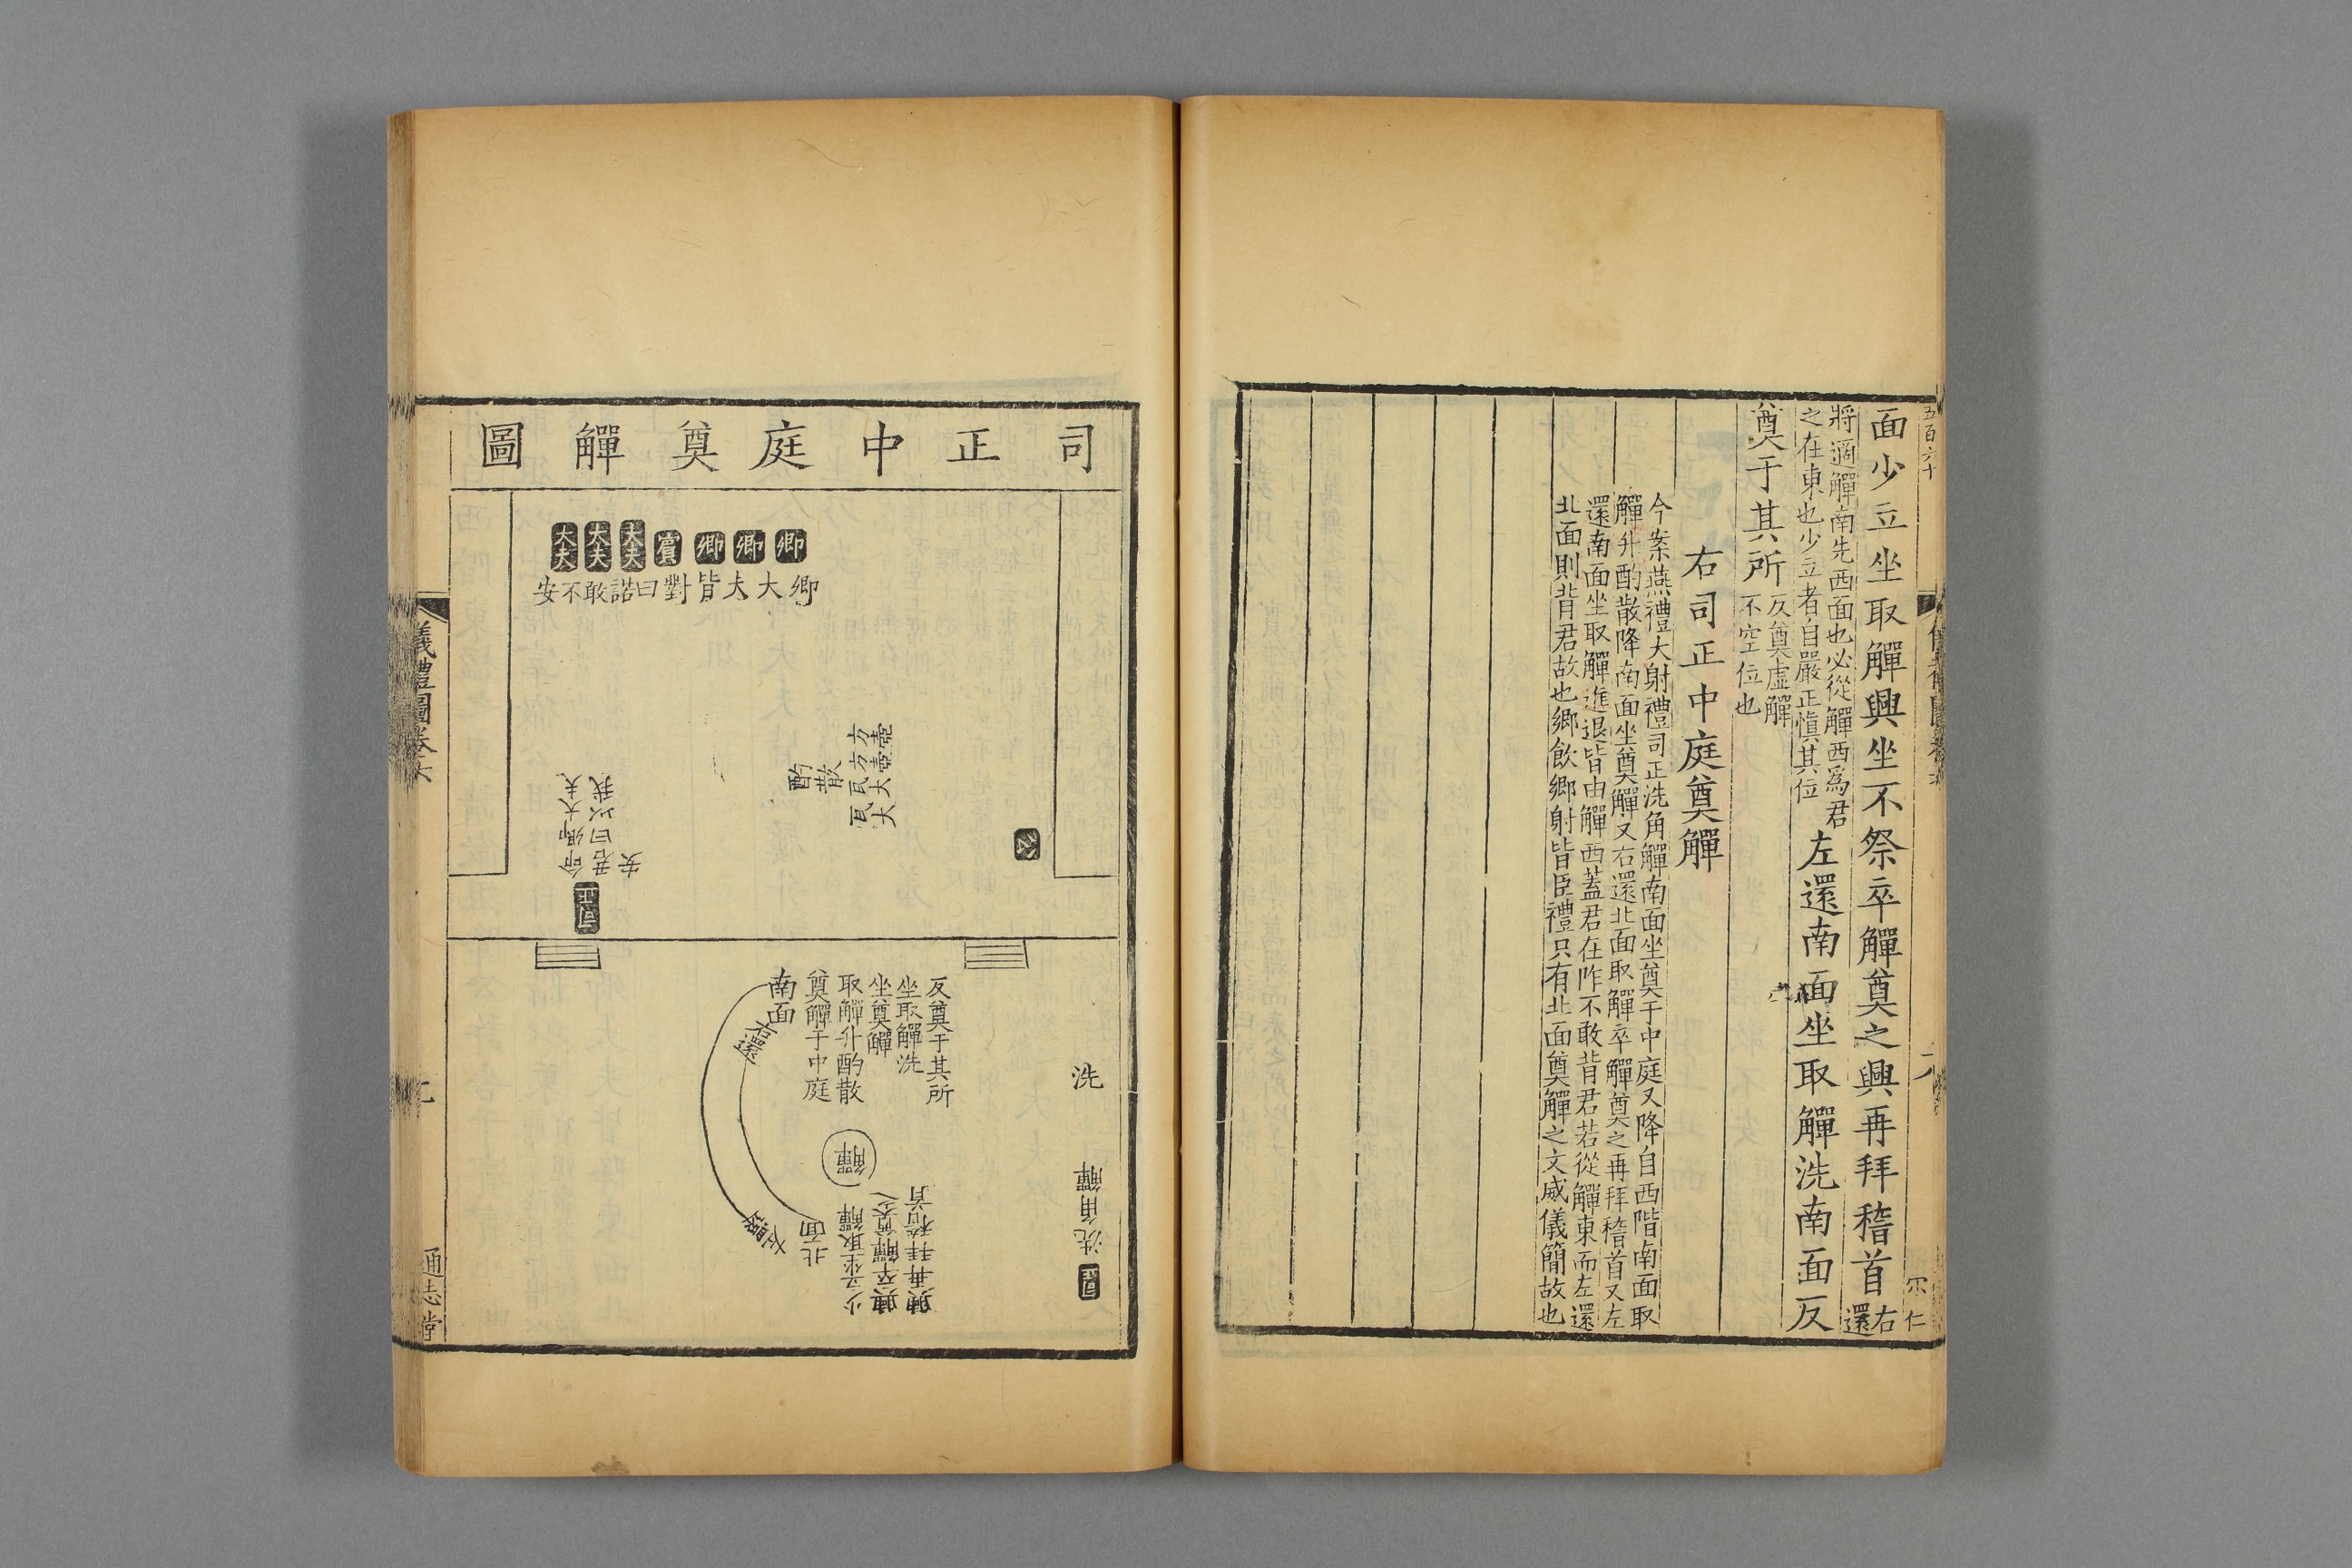 五百六十
面少立坐取觶興坐不祭卒觶奠之興再拜稽首右還
將適觶南先西面也必從觶西爲君
之在東也少立者自嚴正愼其位
左還南面坐取觶洗南面反
奠于其所
反奠虛觶
不空位也
右司正中庭奠觶
今案燕禮大射禮司正洗角觶南面坐奠于中庭又降自西階南面取
觶升酌散降南面坐奠觶又右還北面取觶卒觶奠之再拜稽首又左
還南面坐取觶進退皆由觶西蓋君在阼不敢背君若從觶東而左還
北面則背君故也鄉飲鄉射皆臣禮只有北面奠觶之文威儀簡故也
司正中庭奠觶圖
卿
卿
卿
賓
大夫
大夫
大夫
卿大夫皆對曰諾敢不安
方壺
方壺
瓦大
瓦大
酌散
公
命卿大夫
君曰以我
安
司正
洗
洗角觶
司正
反奠于其所
坐取觶洗
坐奠觶
取觶升酌散
奠觶于中庭
南面
右還
觶
左還
北面
少立坐取觶
興卒觶奠之
興再拜稽首
儀禮圖卷六
通志堂